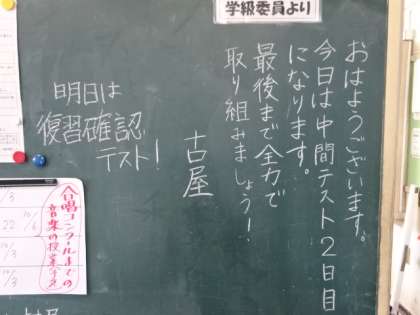 学級委員より
おはようございます。
今日は中間テスト2日目
になります。
最後まで全力で
取り組みましょう!
古屋
明日は
復習確認
テスト!
合唱コンクールまでの
音楽の授業